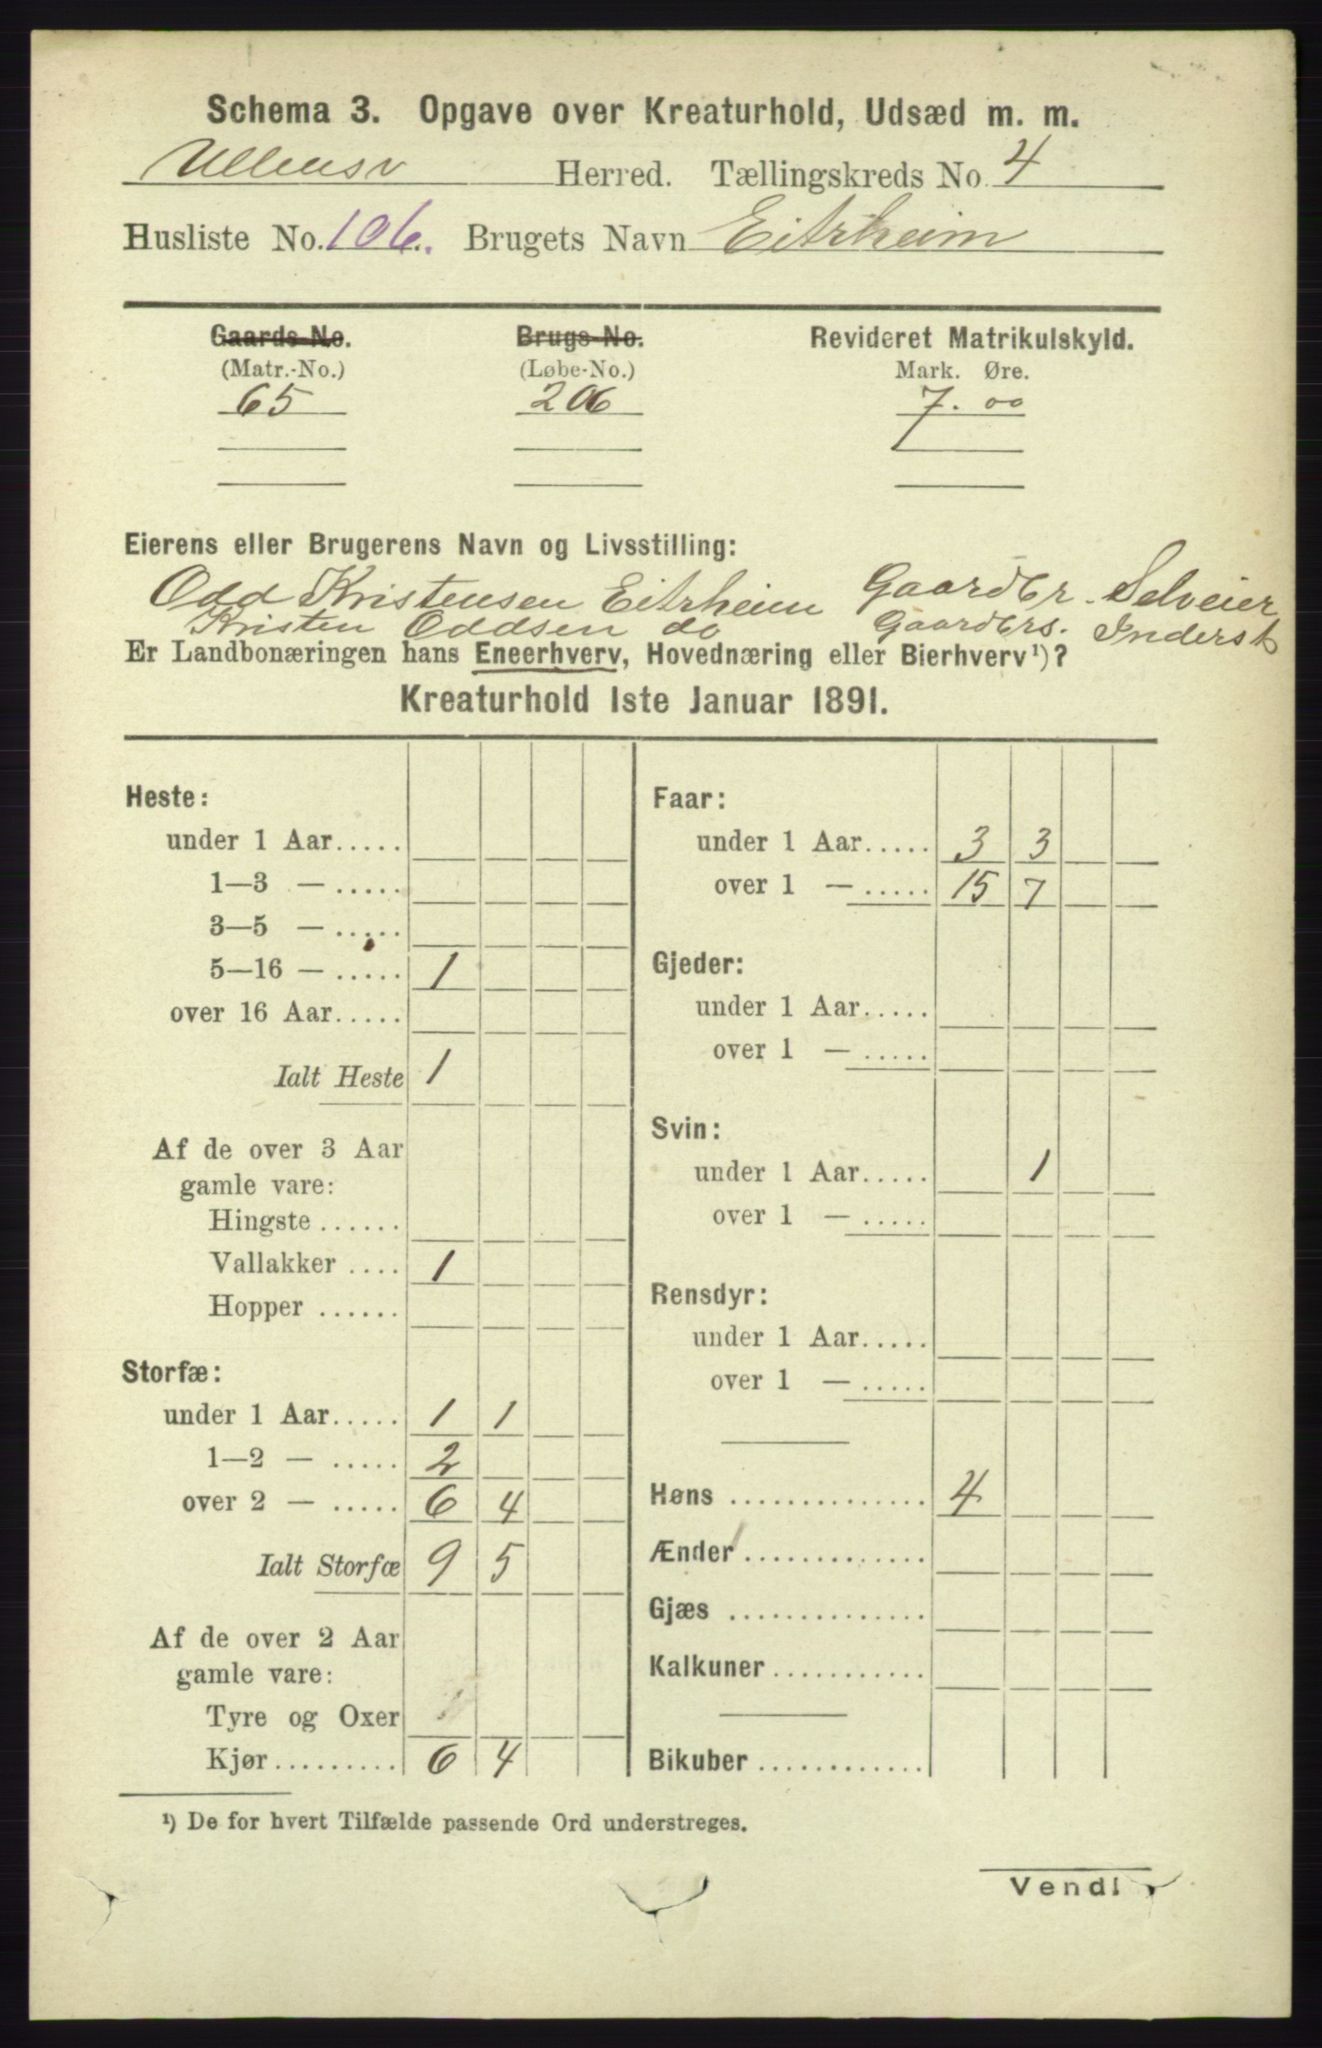 Schema 3. Opgave over Kreaturhold, Udsæd m. m.
Ullensv Herred. Tællingskreds No. 4
Husliste No. 106. Brugets Navn Eitrheim
Gaards-No. Brugs-No. Revideret Matrikulskyld.
(Matr.-No.) (Løbe-No.) Mark. Øre.
65 206 7.00
Eierens eller Brugerens Navn og Livsstilling:
Odd Kristensen Eitrheim Gaardbr. Selveier
Kristen Oddsen do Gaardbrs. Inderst
Er Landbonæringen hans Eneerhverv, Hovednæring eller Bierhverv¹)?
Kreaturhold 1ste Januar 1891.
Heste:
under 1 Aar.....
1—3 — .....
3—5 — .....
5—16 — ..... 1
over 16 Aar.....
Ialt Heste 1
Af de over 3 Aar
gamle vare:
Hingste ......
Vallakker .... 1
Hopper ......
Storfæ:
under 1 Aar..... 1 1
1—2 — ..... 2
over 2 — ..... 6 4
Ialt Storfæ 9 5
Af de over 2 Aar
gamle vare:
Tyre og Oxer
Kjør.......... 6 4
Faar:
under 1 Aar..... 3 3
over 1 — ..... 15 7
Gjeder:
under 1 Aar.....
over 1 — .....
Svin:
under 1 Aar..... 1
over 1 — .....
Rensdyr:
under 1 Aar.....
over 1 — .....
Høns .............. 4
Ænder.............
Gjæs ..............
Kalkuner...........
Bikuber ............
¹) De for hvert Tilfælde passende Ord understreges.
Vend!